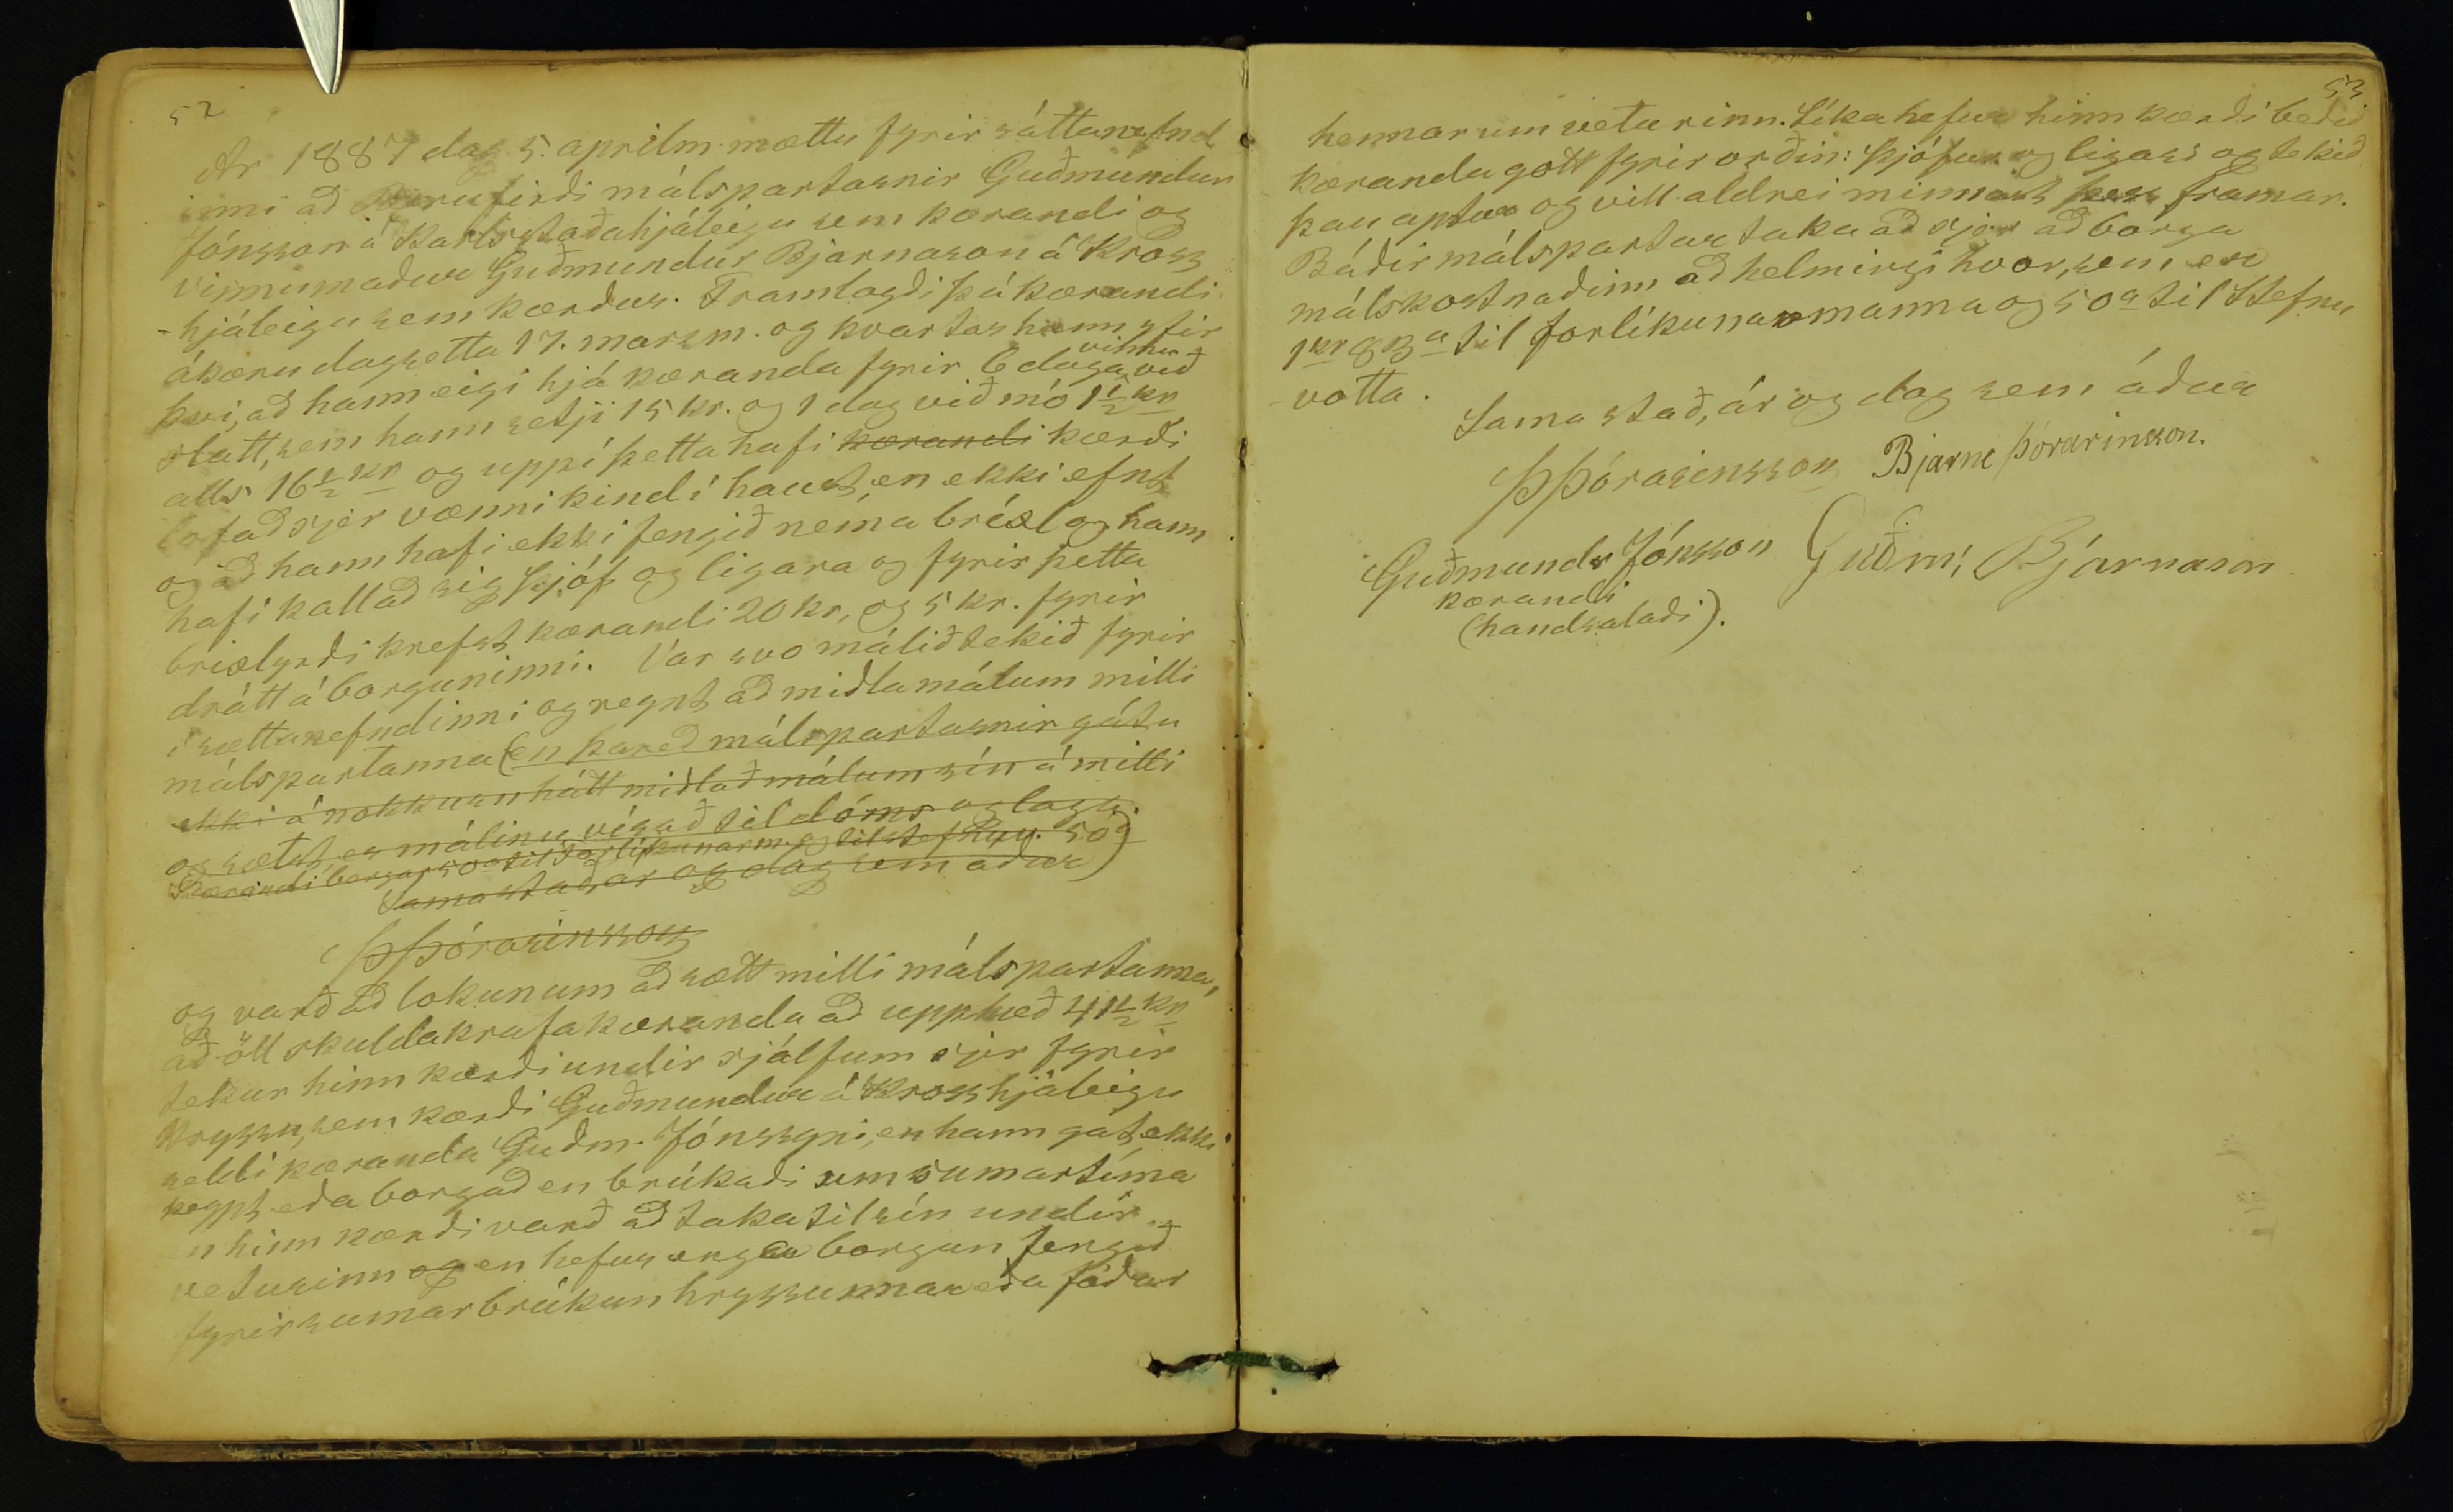 52
Ár 1887 dag 5. aprilm. mættu fyrir sáttanefnd
inni að Berufirði málspartarnir Guðmundur
Jónsson á Karlsstaðahjáleigu sem kærandi og
vinnumaður Guðmundur Bjarnason á Kross
-hjáleigu sem kærður. Framlagði þá kærandi
ákæru dagsetta 17. marsm. og kvartar hann yfir
því, að hann eigi hjá kæranda fyrir 6 daga vinnu við
slátt, sem hann setji 15 kr. og 1 dag við mó 1½ kr
alls 16½ kr og uppí þetta hafi kærandi kærði
lofað sjer vænni kind í haust, en ekki efnt
og að hann hafi ekki fengið nema brísl og hann
hafi kallað sig þjóf og ligara og fyrir þetta
bríslyrði krefst kærandi 20 kr, og 5 kr. fyrir
drátt á borguninni. Var svo málið tekið fyrir
í sættanefndinni og reynt að miðla málum milli
málspartanna (en þareð málspartarnir gátu
ekki á nokkurn hátt miðlað málum sín á milli
og sætst er málinu vísað til dóms og laga.
Kærandi borgar 50a til forlíkunarm. og til stefnuv. 50a
Sama stað, ár og dag sem áður)
ÞÞórarinsson
og varð að lokunum að sætt milli málspartanna,
að öll skuldakrafa kæranda að upphæð 41½ kr
tekur hinn kærði undir sjálfum sjer fyrir
hryssu, sem kærði Guðmundur á Krosshjáleigu
seldi kæranda Guðm. Jónssyni, en hann gat ekki
keypt eða borgað en brúkaði um sumartíma
en hinn kærði varð að taka til sín undir
veturinn og en hefur enga borgun fengið
fyrir sumarbrúkun hryssunnar eða fóður
53
hennar um veturinn. Líka hefur hinn kærði beðið
kæranda gott fyrir orðin: þjófur og ligari og tekið
þau aptur og vill aldrei minnast þess framar.
Báðir málspartar taka að sjer að borga
málskostnaðinn að helmingi hvor, sem er
1kr 83a til forlíkunarmanna og 50a til Stefnu
votta.
Sama stað, ár og dag sem áður
ÞÞórarinsson Bjarne Þórarinsson.
Guðmundr Jónsson Guðm; Bjarnason
kærandi
(handsalaði).